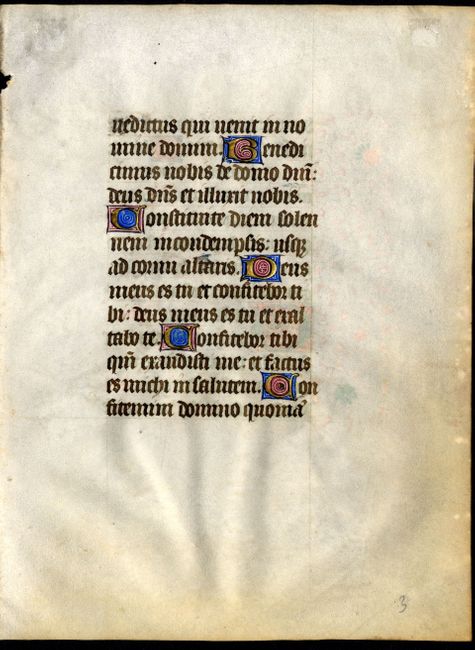 nedictus qui uenit in no
mine domini. Benedi
cimus uobis de domo dñi:
deus dñs et illuxit nobis.
Constituite diem solen
nem in condempsis: usqꝫ
ad cornu altaris. Deus
meus es tu et confitebor ti
bi: deus meus es tu et exal
tabo te. Confitebor tibi
qm̃ exaudisti me: et factus
es michi in salutem. Con
fitemini domino quoniã
3